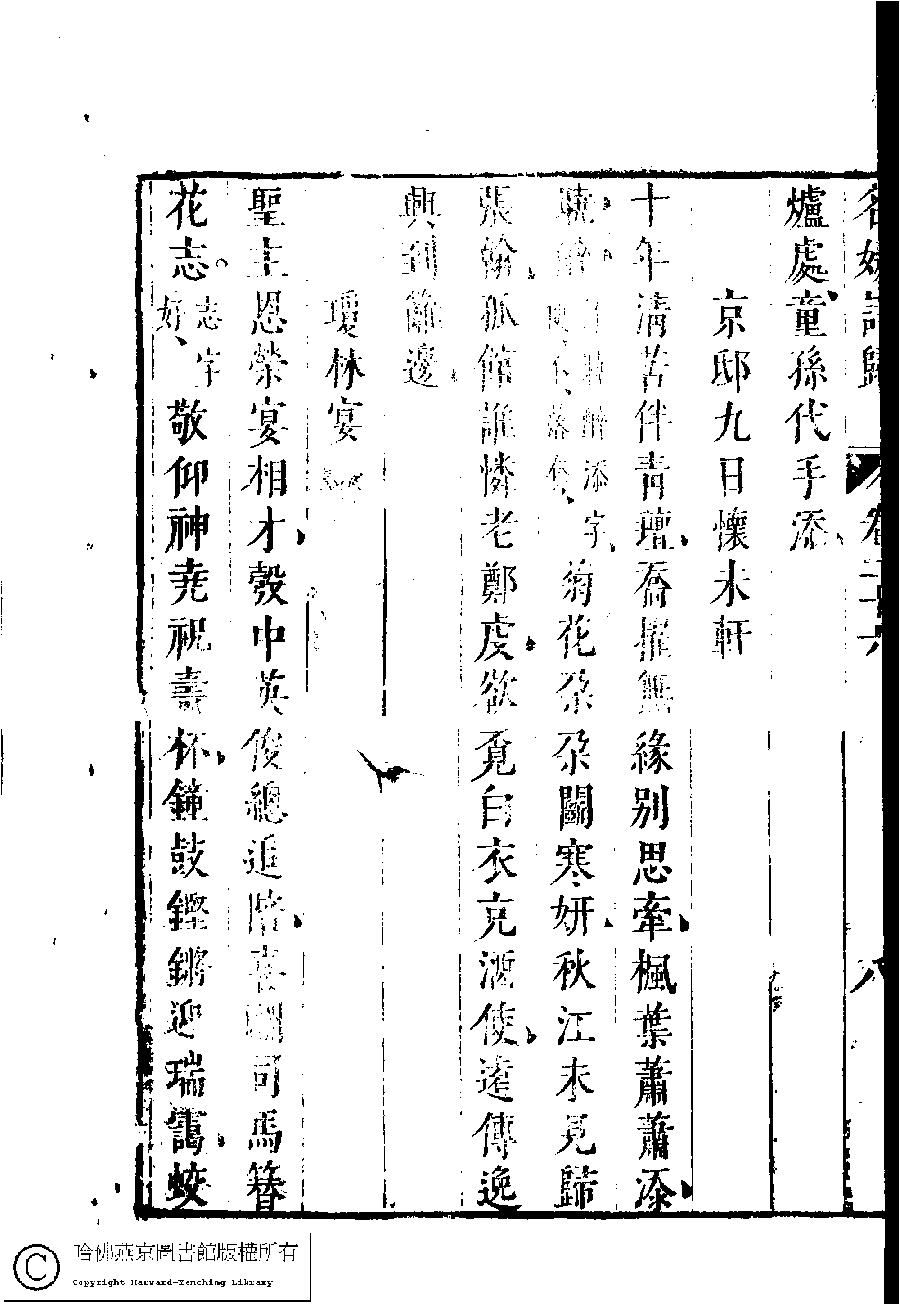 名媛詩歸 卷二十六 八
爐處童孫代手添
京邸九日懷未軒
十年清苦伴青氊喬擢無緣别思牽楓葉蕭蕭添
曉醉 醉添字 便不落套 菊花朶朶鬭寒妍秋江未見歸
張翰孤館誰憐老鄭虔欲覔白衣充酒使遠傳逸
興到籬邊
瓊林宴
聖主恩榮宴相才彀中英俊總追陪喜聞司馬簪
花志 志字好 敬仰神尭祝壽杯鐘鼓鏗鏘迎瑞靄蛟
哈佛燕京圖書館版權所有
Copyright Harvard-Yenching Library